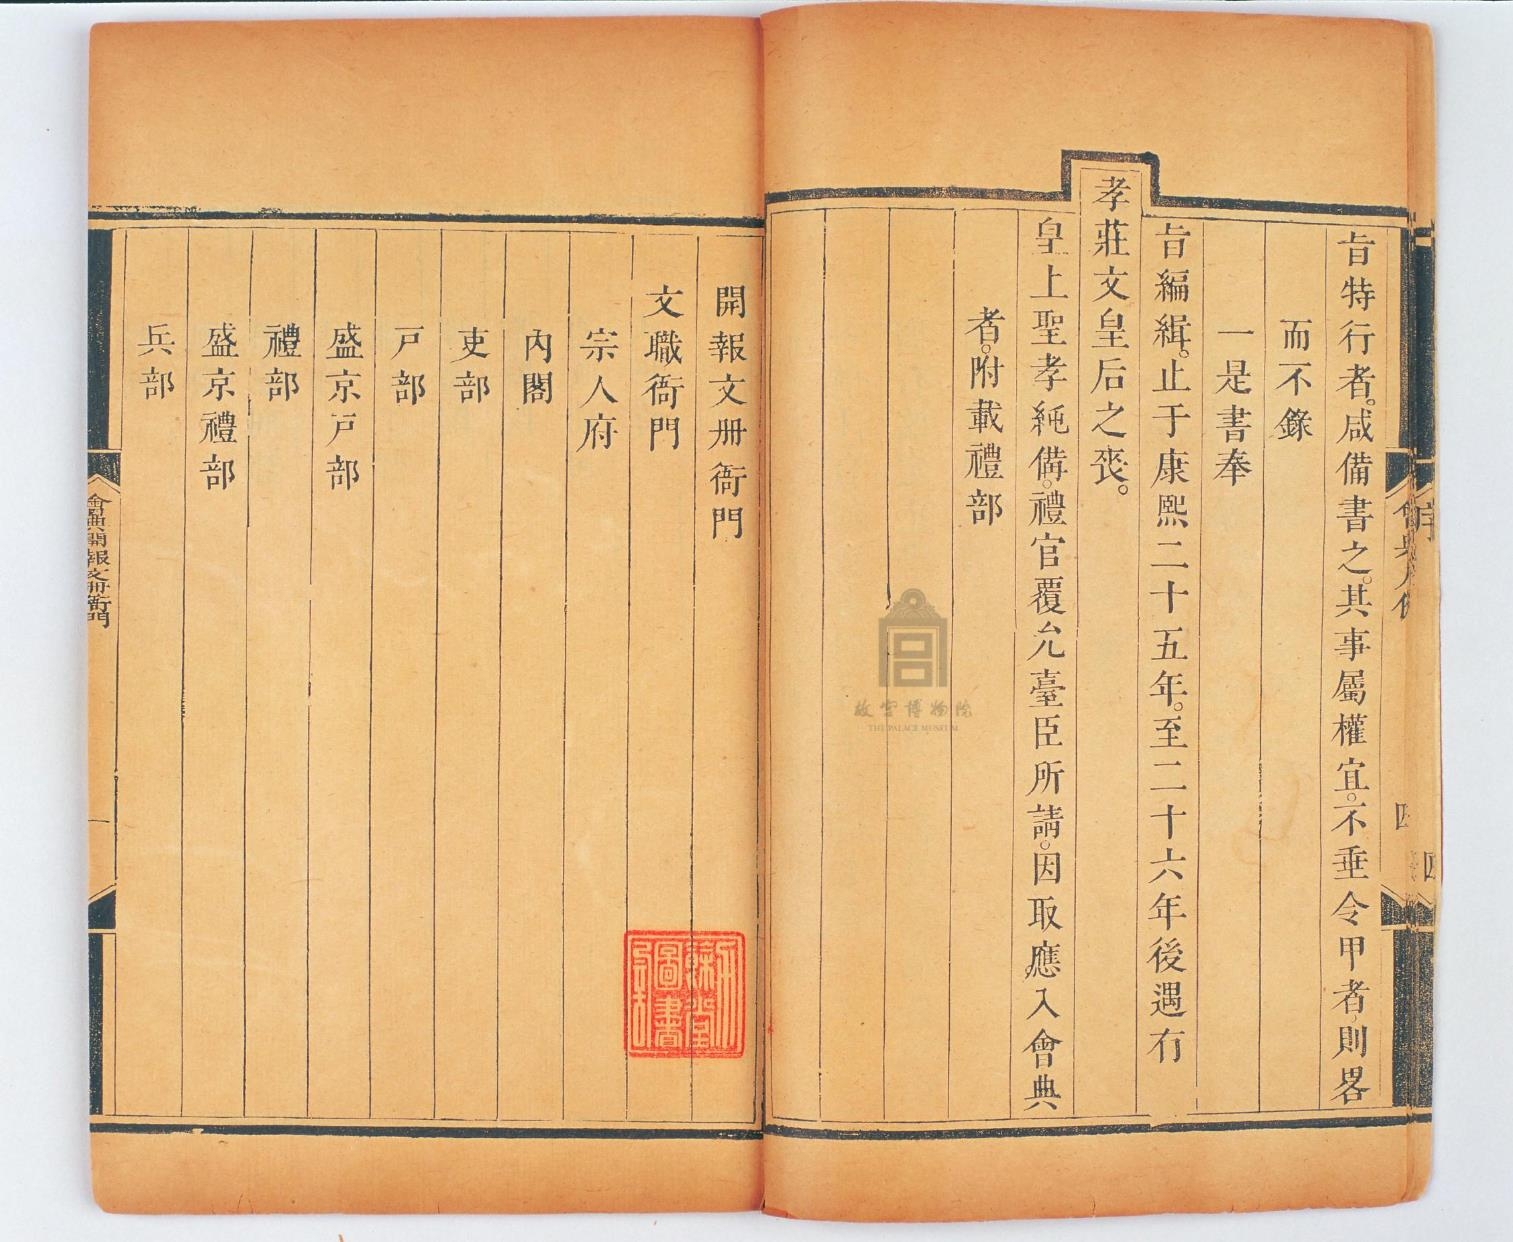 旨特行者。咸備書之。其事屬權宜。不垂令甲者。則畧
而不錄
一是書奉
旨編緝。止于康熙二十五年。至二十六年後遇有
孝莊文皇后之喪。
皇上聖孝純備。禮官覆允臺臣所請。因取應入會典
者。附載禮部
開報文册衙門
文職衙門
宗人府
內閣
吏部
戸部
盛京戸部
禮部
盛京禮部
兵部
會典開報文册衙門
一
圖書
故宮博物院
THE PALACE MUSEUM